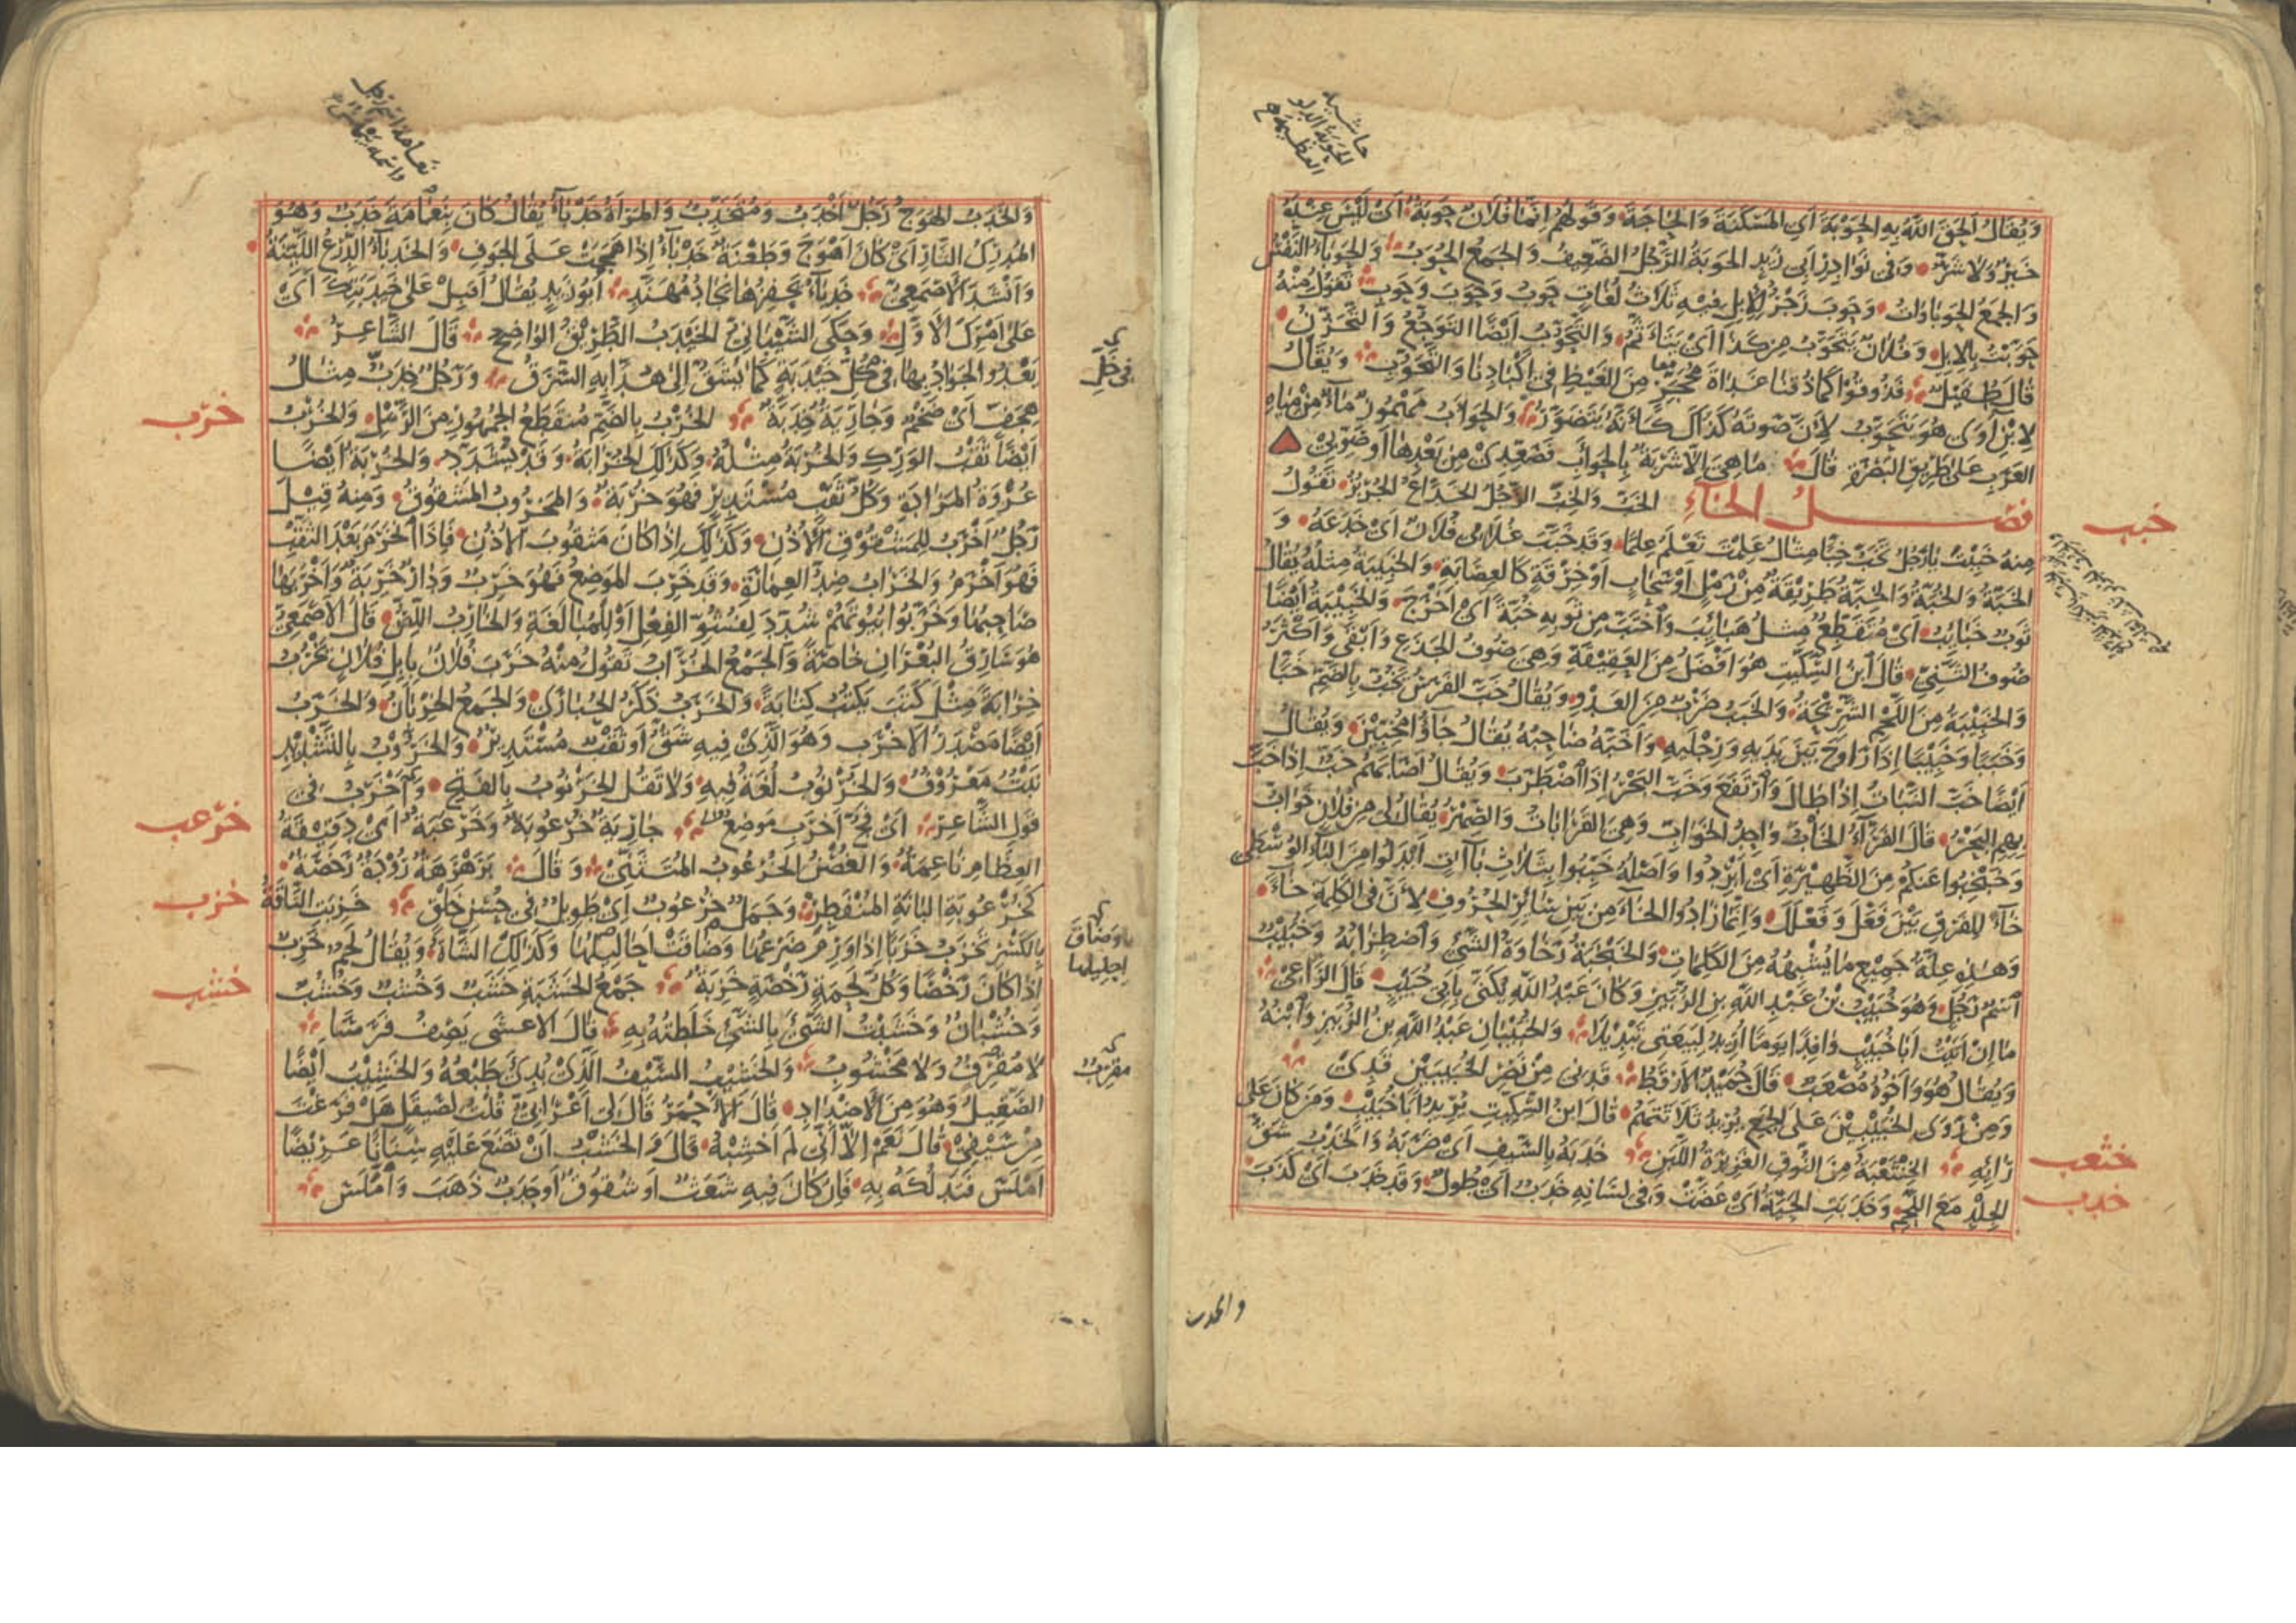 حاشية
الحوبة الدلو
العظيمة
ويقال الحق الله به الحوبة أي المسكنة والحاجة وقولهم انما فلان حوبة اي ليس عنده
خير ولا شر وفي نوادر ابي زيد الحوبة الرجل الضعيف والجمع الحوب والحوباء النفس
والجمع الحوباوات وحوب زجر للابل فيه ثلاث لغات حوب وحوب وحوب تقول منه
حوبت بالابل وفلان يتحوب من كذا اي يتأثم والتحوب ايضا التوجع والتحزن
قال طفيل فذوقوا كما ذقنا غداة محجر من الغيظ في اكبادنا والتحوب ويقال
لابن آوى هو يتحوب لأن صوته كذلك كأنه يتضور والحوأب مهموز ماء من مياه
العرب على طريق البصرة قال ما هي الا شربة بالحوأب فصعدي من بعدها أو صوبي
فصل الخاء الخب والخب الرجل الخداع الجربز تقول
خبب
منه خببت يا رجل تخب خبا مثال علمت تعلم علما وقد خبب غلامي فلان اي خدعه و
الخبة والخبة والخبة طريقة من رمل او سحاب او خرقة كالعصابة والخبيبة مثله يقال
ثوب خبايب اي متقطع مثل هبائب واختب من ثوبه خبة اي اخرج والخبيبة ايضا
صوف الثني قال ابن السكيت هو افضل من العقيقة وهي صوف الجذع وابقى واكثر
والخبيبة من اللحم الشريحة والخبب ضرب من العدو ويقال خب الفرس يخب بالضم خبا
وخببا وخبيبا اذا راوح بين يديه ورجليه واخبه صاحبه يقال جاؤا مخبين ويقال
ايضا خب النبات اذا طال وارتفع وخب البحر اذا اضطرب ويقال اصابهم خب اذا خب
بهم البحر قال الفراء الخاب واحد الخواب وهي القرابات والصهر يقال لي من فلان خواب
وخبخبوا عنكم من الظهيرة اي ابردوا واصله خببوا بثلاث باآت ابدلوا من الباء الوسطى
خاء للفرق بين فعلل وفعل وانما زادوا الخاء من بين سائر الحروف لأن في الكلمة خاء
وهذه علة جميع ما يشبهه من الكلمات والخبخبة رخاوة الشئ واضطرابه وخبيب
اسم رجل وهو خبيب بن عبد الله بن الزبير وكان عبد الله يكنى بابي خبيب قال الراعي
ما ان اتيت ابا خبيب وافدا يوما اريد لبيعتي تبديلا والخبيبان عبد الله بن الزبير وابنه
ويقال هو واخوه مصعب قال حميد الارقط قدني من نصر الخبيبين قدي
ومن روى الخبيبين على الجمع يريد ثلاثتهم قال ابن السكيت يريد ابا خبيب ومن كان على
رائه الخنثعبة من النوق الغزيرة اللبن خدبه بالسيف اي ضربه والخدب شق
خثعب
الجلد مع اللحم وخدبت الحية اي عضت وفي لسانه خدب اي طول وقد خدب اي كذب
خدب
والخدب
نعامة اسم رجل
والخدب الهوج رجل اخدب ومتخدب والمرأة خدباء يقال كان بنعامة خدب وهو
المدرك الثار اي كان اهوج وطعنة خدباء اذا هجمت على الجوف والخدباء الدرع اللينة
وانشد الاصمعي خدباء يحفزها نجاد مهند ابو زيد يقال اقبل على خيدبتك اي
على امرك الاول وحكى الشيباني الخيدب الطريق الواضح قال الشاعر
يعدو الجواد بها في خل خيدبة كما يشق الى هدابه السرق ورجل خدب مثال
في خل
هجف اي ضخم وجارية خدبة الخرب بالضم منقطع الجمهور من الرمل والخرب
خرب
ايضا ثقب الورك والخربة مثله وكذلك الخرابة وقد يشدد والخربة ايضا
عروة المزادة وكل ثقب مستدير فهو خربة والمخروب المشقوق ومنه قيل
رجل اخرب للمشقوق الاذن وكذلك اذا كان مثقوب الاذن فاذا انخرم بعد الثقب
فهو اخرم والخراب ضد العمارة وقد خرب الموضع فهو خرب ودار خربة واخربها
صاحبها وخربوا بيوتهم شدد لفشو الفعل او للمبالغة والخارب اللص قال الاصمعي
هو سارق البعران خاصة والجمع الخراب تقول منه خرب فلان بابل فلان يخرب
خرابة مثل كتب يكتب كتابة والخرب ذكر الحبارى والجمع الخربان والخرب
ايضا مصدر الاخرب وهو الذي فيه شق او ثقب مستدير والخروب بالتشديد
نبت معروف والخرنوب لغة فيه ولا تقل الخرنوب بالفتح واخرب في
قول الشاعر اي نجا اخرب موضع جارية خرعوبة وخرعبة اي دقيقة
خرعب
العظام ناعمة والغصن الخرعوب المتثني وقال برهرهة رؤدة رخصة
كخرعوبة البانة المنفطر وجمل خرعوب اي طويل في حسن خلق خزبت الناقة
خزب
بالكسر تخزب خزبا اذا ورم ضرعها وضاقت احاليلها وكذلك الشاة ويقال لحم خزب
اذا كان رخصا وكل لحمة رخصة خزبة جمع الخشبة خشب وخشب وخشب
خشب
وخشبان وخشبت الشئ بالشئ خلطته به قال الاعشى يصف فرسا
لا مقرف ولا مخشوب والخشيب السيف الذي بدئ طبعه والخشيب ايضا
الصقيل وهو من الاضداد قال الاحمر قال لي اعرابي قلت لصيقل هل فرغت
من سيفي قال نعم الا اني لم اخشبه قال والخشب ان تضع عليه سنانا عريضا
املس فتدلكه به فان كان فيه شعث او شقوق او حدب ذهب واملس